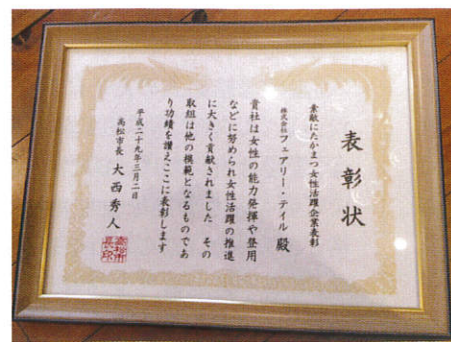 表彰状
素敵にたかまつ女性活躍企業表彰
株式会社フェアリー・テイル殿
貴社は女性の能力発揮や登用
などに努められ女性活躍の推進
に大きく貢献されました その
取組は他の模範となるものであ
り功績を讃えここに表彰します
平成二十九年三月二日
高松市長 大西秀人
高松市長之印